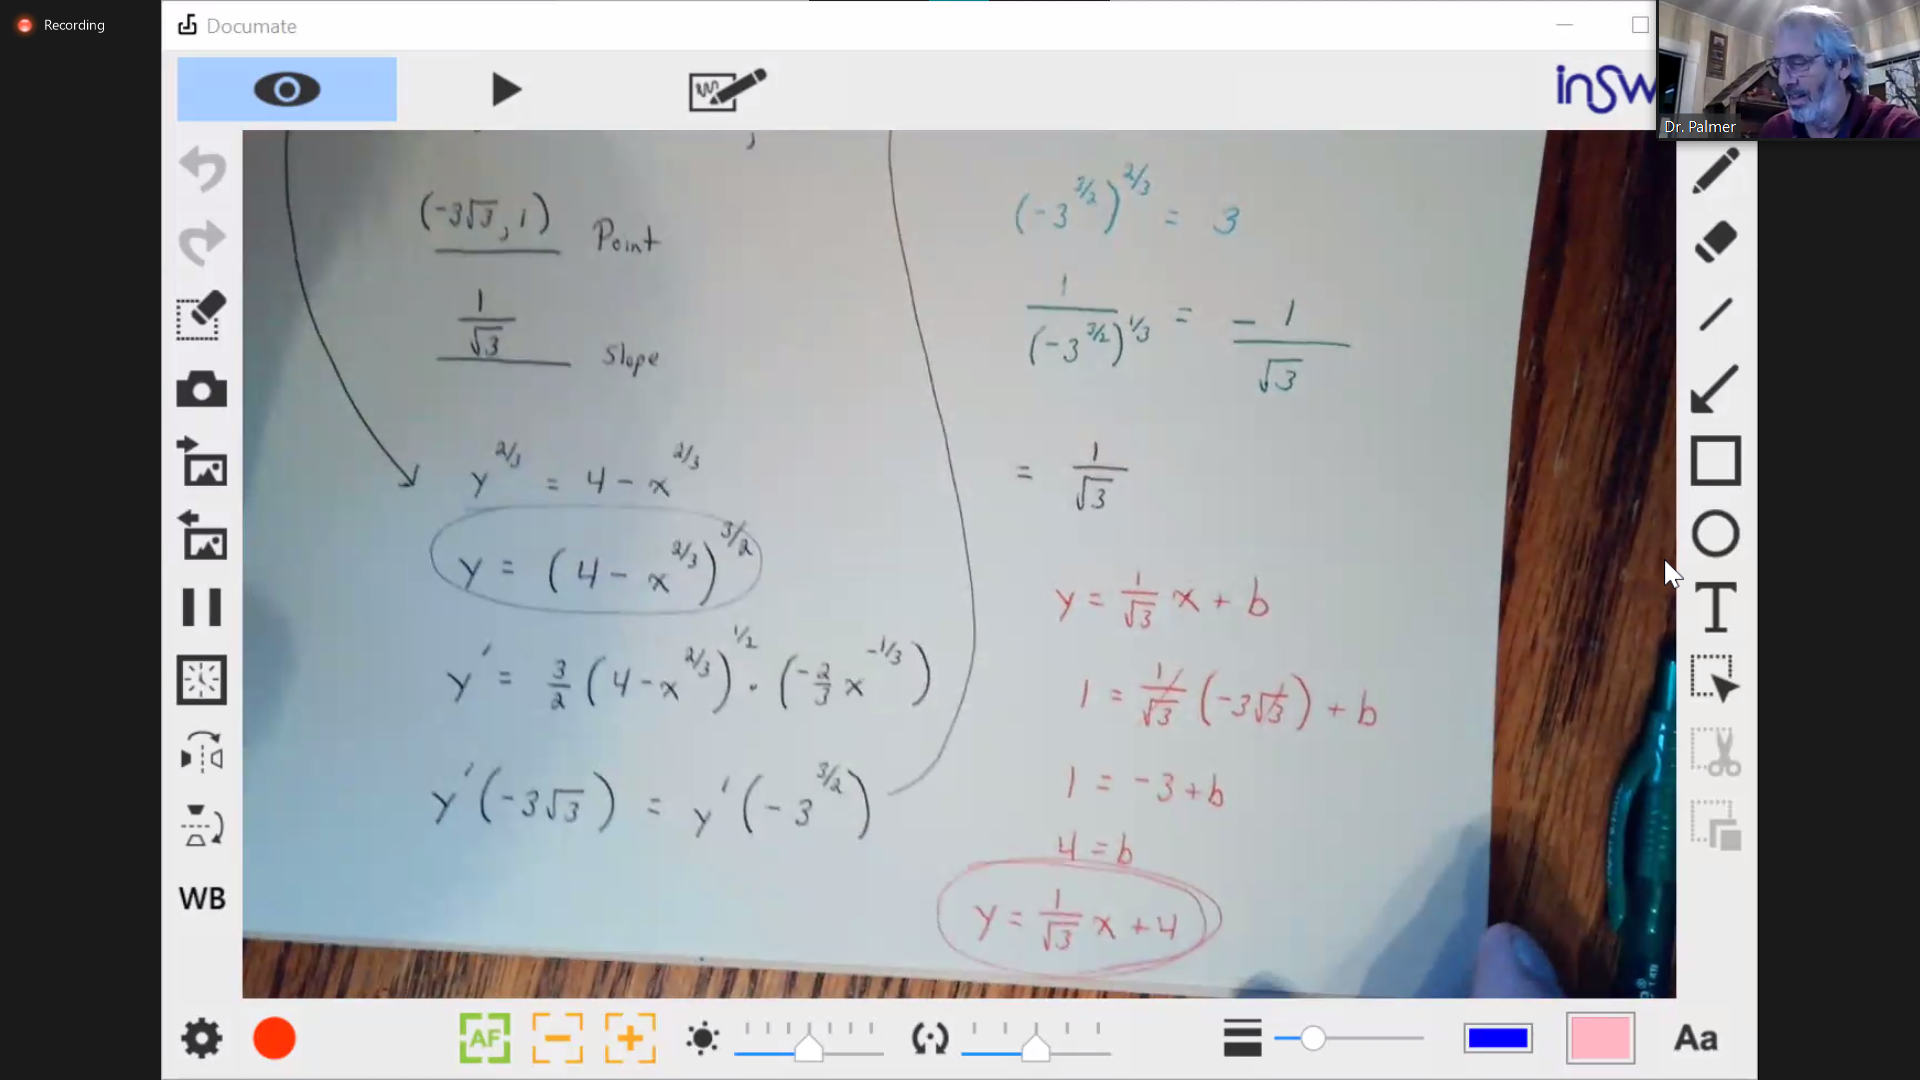 Recording
Documate
inSw
Dr. Palmer
(-3√3, 1) Point
1/√3 Slope
y^(2/3) = 4 - x^(2/3)
y = (4 - x^(2/3))^(3/2)
y' = 3/2 (4 - x^(2/3))^(1/2) · (-2/3 x^(-1/3))
y'(-3√3) = y'(-3^(3/2))
(-3^(3/2))^(2/3) = 3
1/(-3^(3/2))^(1/3) = -1/√3
= 1/√3
y = 1/√3 x + b
1 = 1/√3 (-3√3) + b
1 = -3 + b
4 = b
y = 1/√3 x + 4
WB
T
AF
Aa